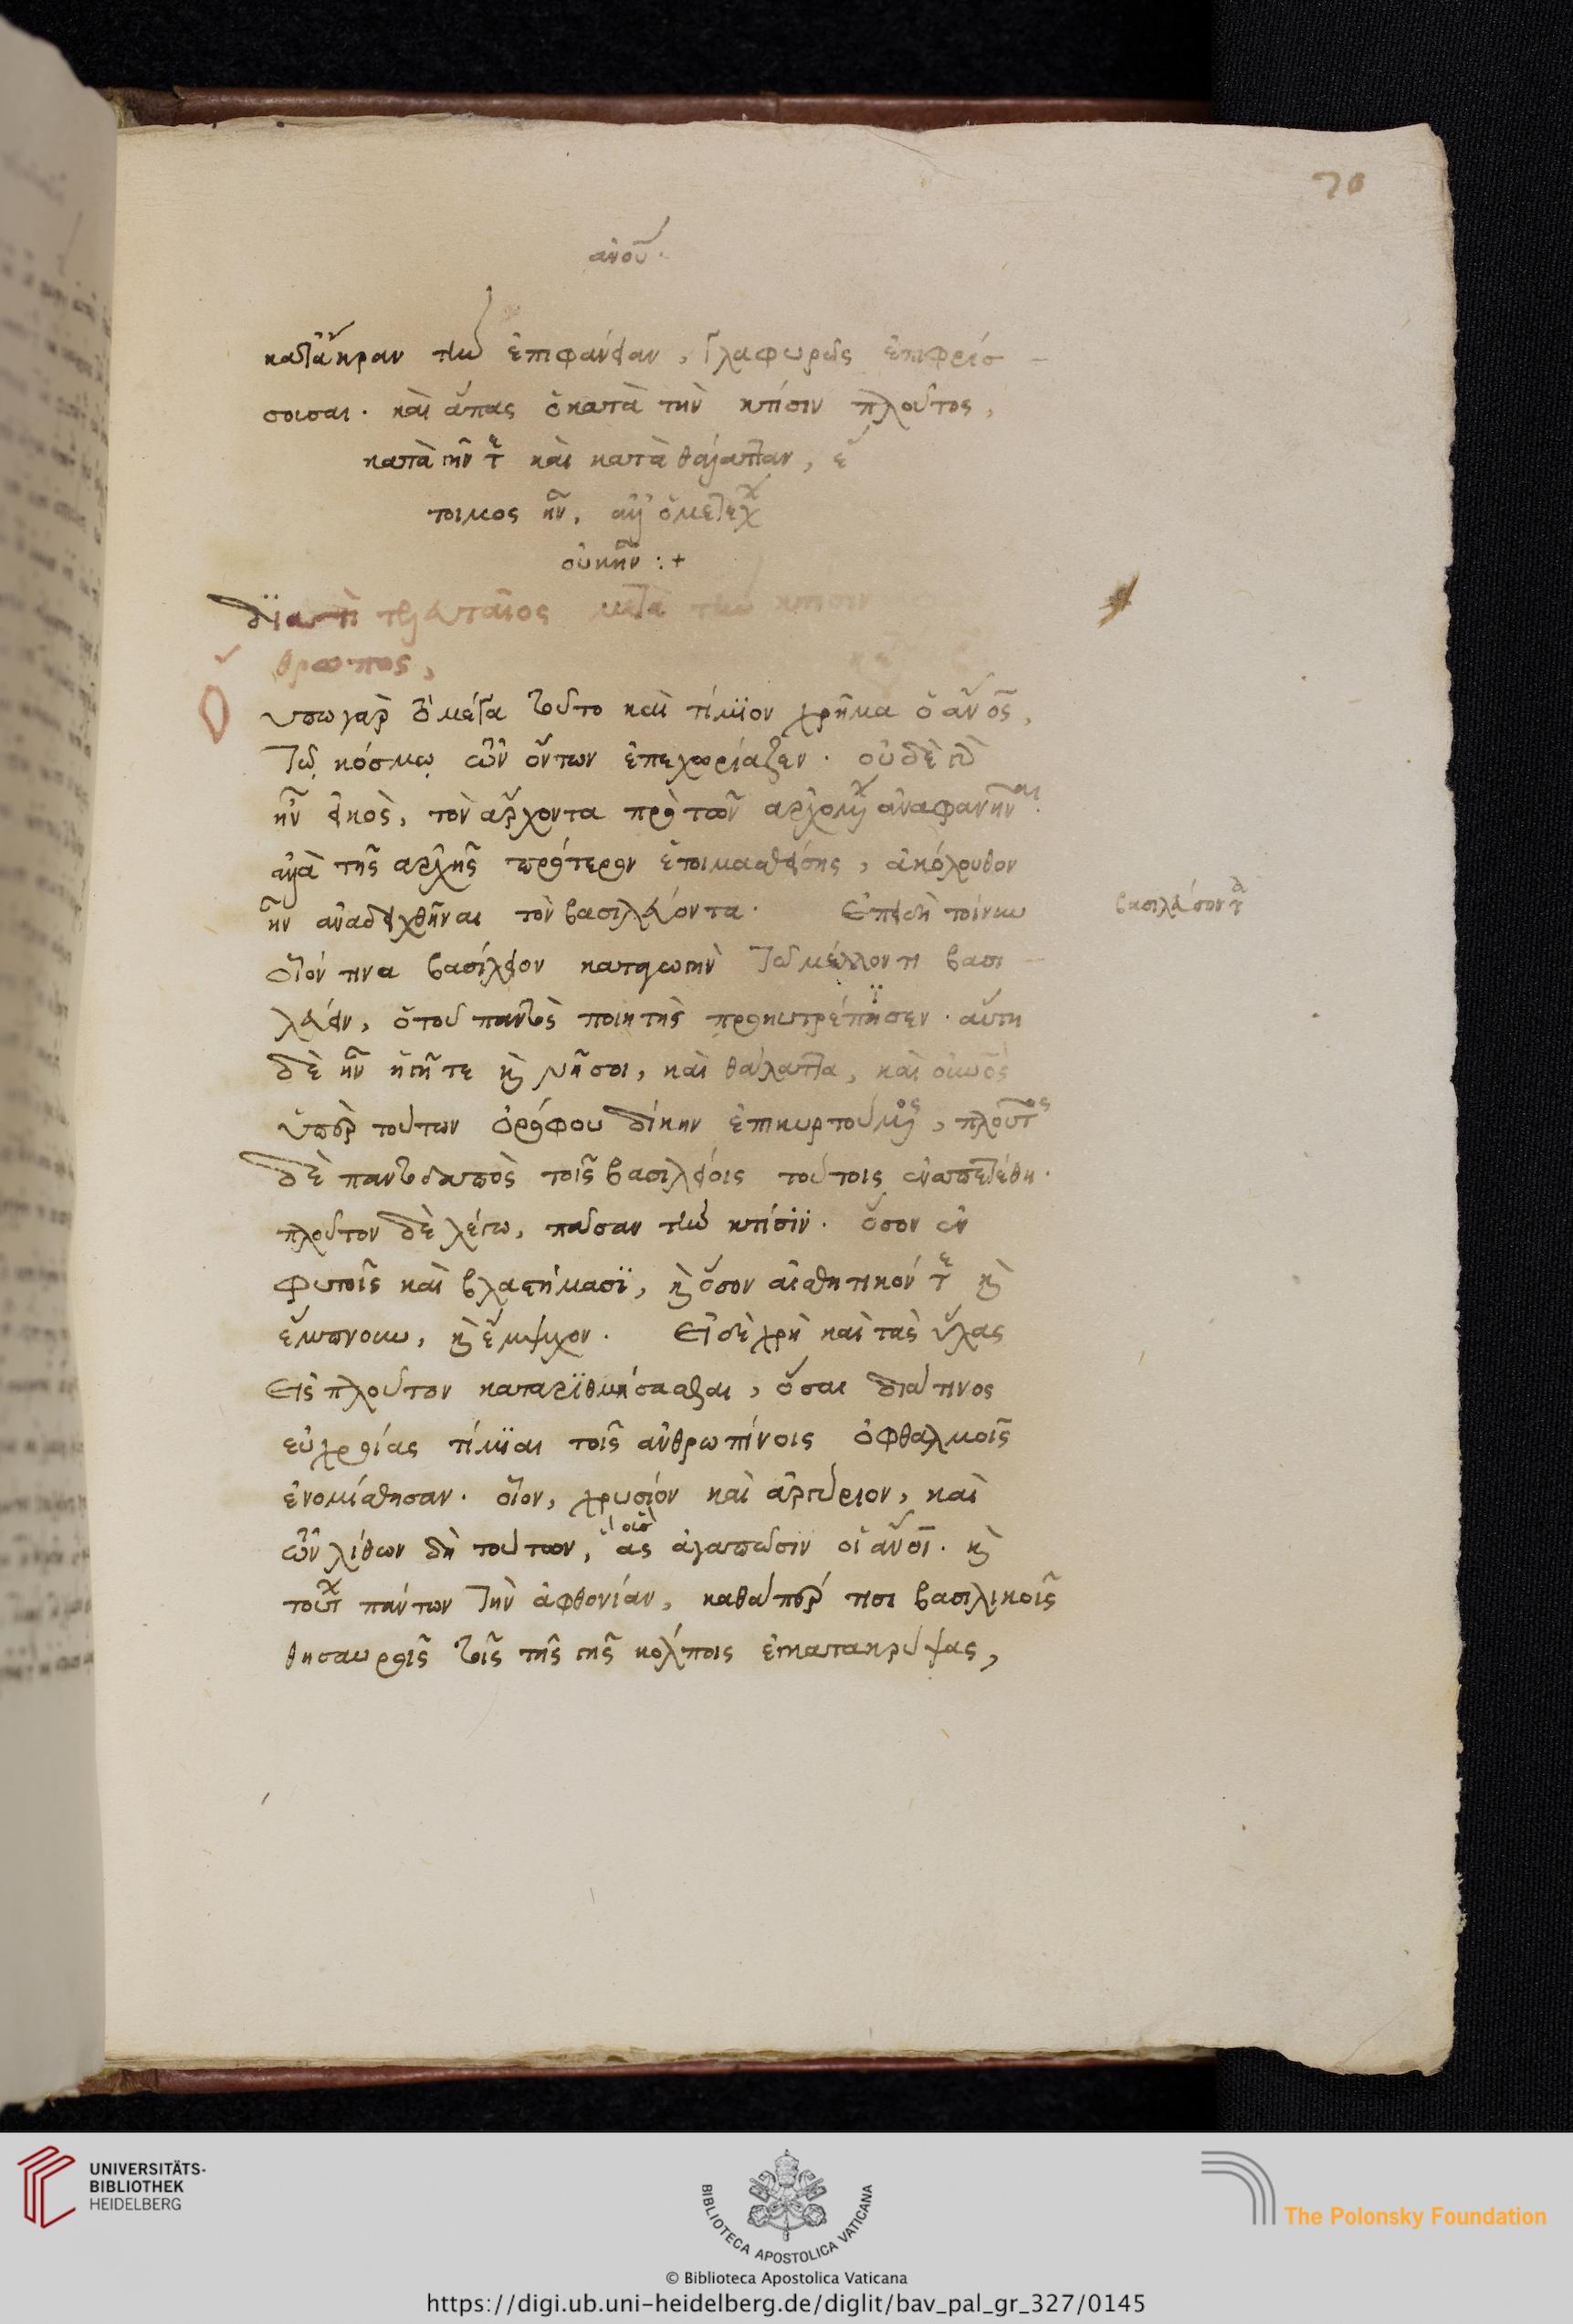 70
ἀνοῦ.
κατάκραν τὴν ἐπιφάνειαν, γλαφυρῶς ἐπιφρίσ-
σουσαι. καὶ ἅπας ὁ κατὰ τὴν κτίσιν πλοῦτος,
κατὰ γῆν τε καὶ κατὰ θάλατταν, ἕ
τοιμος ἦν, ἀλλ' ὁ μετέχων
οὐκ ἦν :+
διατί τελευταῖος μετὰ τὴν κτίσιν
θρωπος,
ύπω γὰρ τὸ μέγα τοῦτο καὶ τίμϊον χρῆμα ὁ ἄνος,
τῷ κόσμῳ τῶν ὄντων ἐπεχωρίαζεν. οὐδὲ γὰρ
ἦν εἰκὸς, τὸν ἄρχοντα πρὸ τῶν ἀρχομένων ἀναφανῆναι.
ἀλλὰ τῆς ἀρχῆς πρότερον ἑτοιμασθείσης, ἀκόλουθον
ἦν ἀναδειχθῆναι τὸν βασιλεύοντα. Ἐπειδὴ τοίνυν
βασιλεύσοντα
οἷόν τινα βασίλειον καταγωγὴν τῷ μέλλοντι βασι-
λεύειν, ὁ τοῦ παντὸς ποιητὴς προηυτρέπησεν. αὕτη
δὲ ἦν ἡ γῆ τε καὶ νῆσοι, καὶ θάλαττα, καὶ οὐνὸς
ὑπὲρ τούτων ὀρόφου δίκην ἐπικυρτούμενος, πλοῦτος
δὲ παντοδαπὸς τοῖς βασιλείοις τούτοις ἐναπετέθη.
πλοῦτον δὲ λέγω, πᾶσαν τὴν κτίσϊν. ὅσον ἐν
φυτοῖς καὶ βλαστήμασϊ, καὶ ὅσον αἰσθητικόν τε καὶ
ἔμπνουν, καὶ ἔμψυχον. Εἰ δὲ χρὴ καὶ τὰς ὕλας
εἰς πλοῦτον καταριθμήσασθαι, ὅσαι διά τινος
εὐχροίας τίμϊαι τοῖς ἀνθρωπίνοις ὀφθαλμοῖς
ἐνομίσθησαν. οἷον, χρυσίον καὶ ἀργύριον, καὶ
τῶν λίθων δὴ τούτων, ἃς ἀγαπῶσιν οἱ ἄνοι. καὶ
τούτων πάντων τὴν ἀφθονίαν, καθάπερ τισι βασιλικοῖς
θησαυροῖς τοῖς τῆς γῆς κόλποις ἐγκατακρύψας,
UNIVERSITÄTS-
BIBLIOTHEK
HEIDELBERG
BIBLIOTECA APOSTOLICA VATICANA
The Polonsky Foundation
© Biblioteca Apostolica Vaticana
https://digi.ub.uni-heidelberg.de/diglit/bav_pal_gr_327/0145